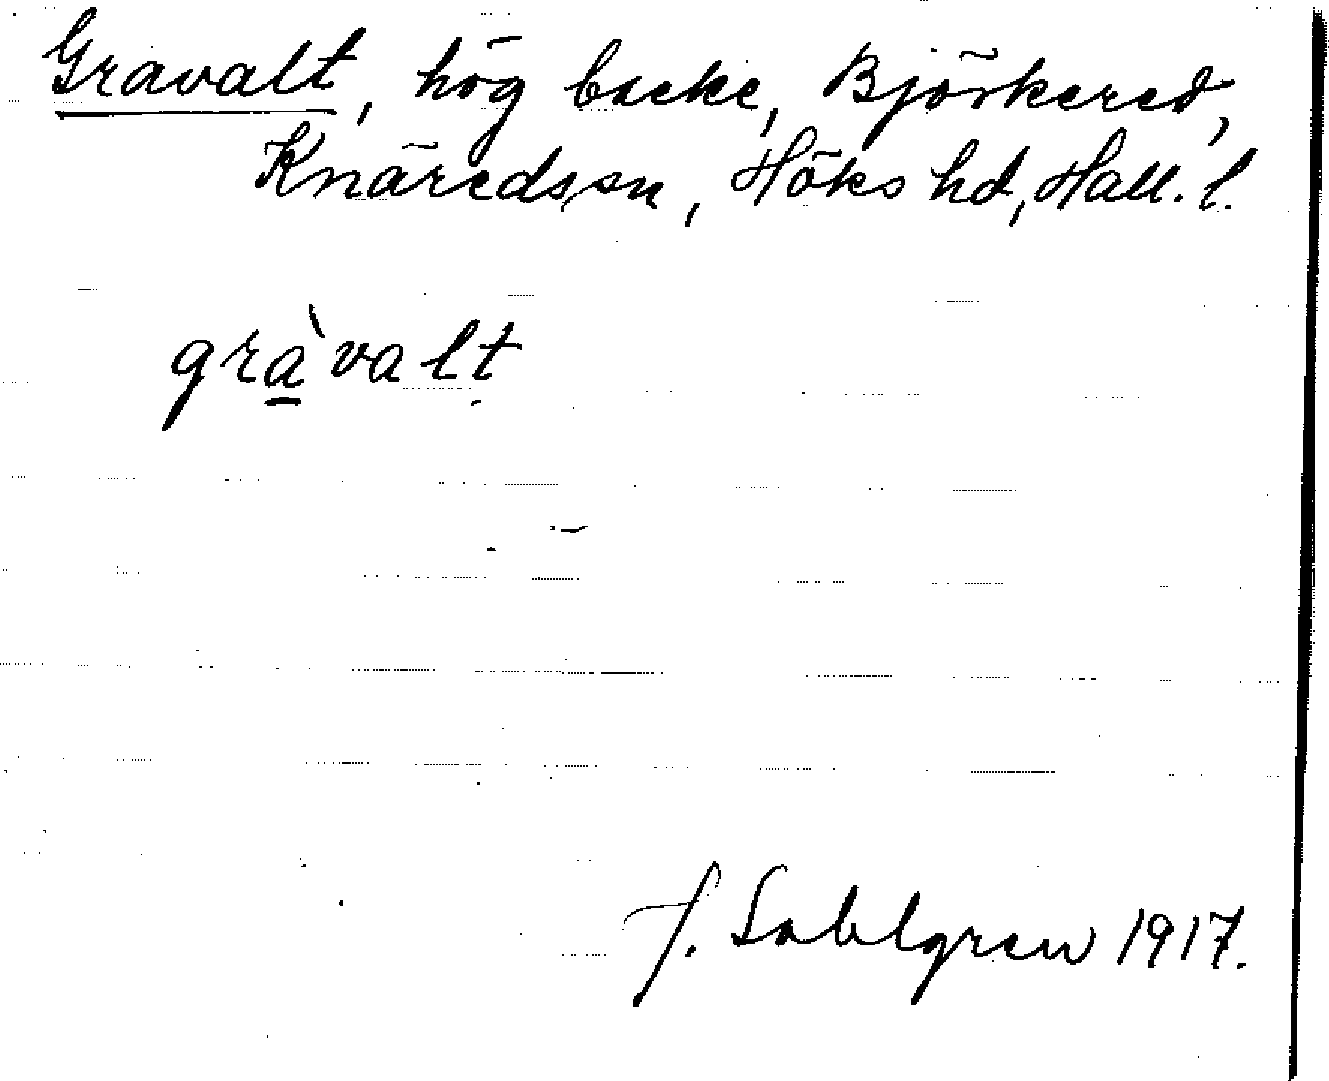 Gravalt, hög backe, Björkered,
Knäreds sn, Höks hd, Hall. l.
grà̱valt
J. Sahlgren 1917.